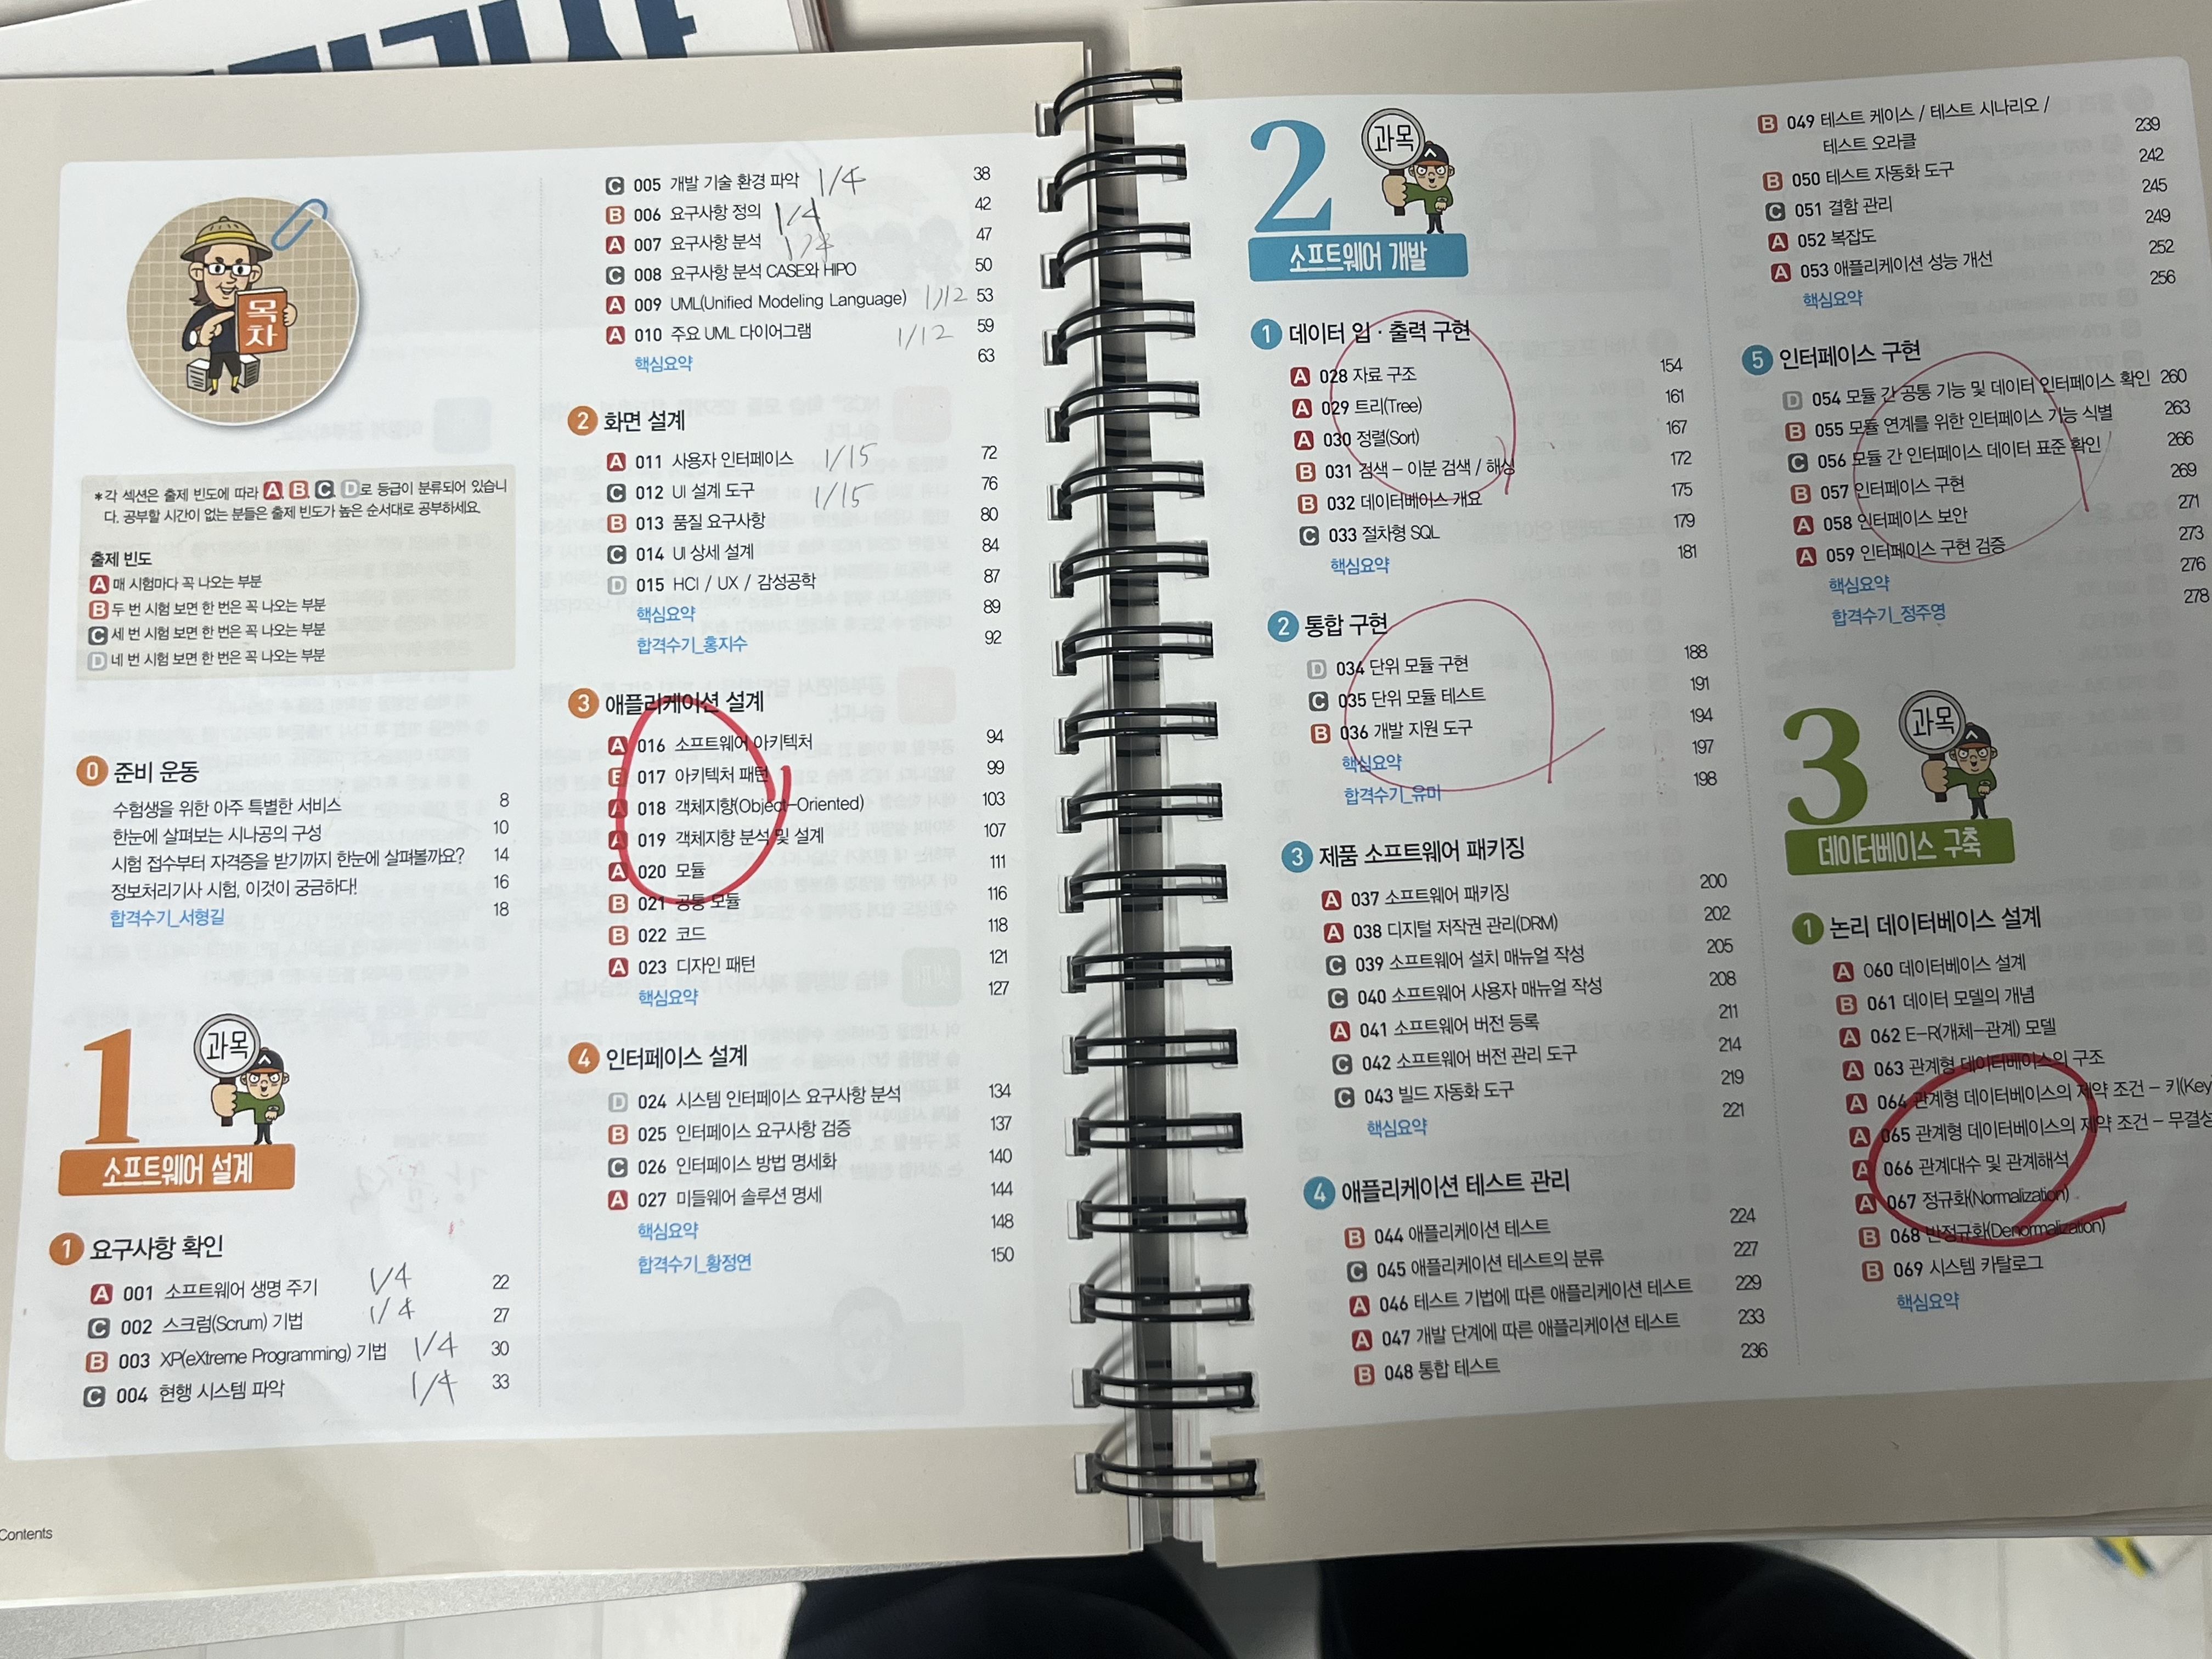 목
차
*각 섹션은 출제 빈도에 따라 A, B, C, D로 등급이 분류되어 있습니
다. 공부할 시간이 없는 분들은 출제 빈도가 높은 순서대로 공부하세요.
출제 빈도
A 매 시험마다 꼭 나오는 부분
B 두 번 시험 보면 한 번은 꼭 나오는 부분
C 세 번 시험 보면 한 번은 꼭 나오는 부분
D 네 번 시험 보면 한 번은 꼭 나오는 부분
0 준비 운동
수험생을 위한 아주 특별한 서비스 8
한눈에 살펴보는 시나공의 구성 10
시험 접수부터 자격증을 받기까지 한눈에 살펴볼까요? 14
정보처리기사 시험, 이것이 궁금하다! 16
합격수기_서형길 18
1 과목
소프트웨어 설계
1 요구사항 확인
A 001 소프트웨어 생명 주기 1/4 22
C 002 스크럼(Scrum) 기법 1/4 27
B 003 XP(eXtreme Programming) 기법 1/4 30
C 004 현행 시스템 파악 1/4 33
Contents
C 005 개발 기술 환경 파악 1/4 38
B 006 요구사항 정의 1/4 42
A 007 요구사항 분석 1/4 47
C 008 요구사항 분석 CASE와 HIPO 50
A 009 UML(Unified Modeling Language) 1/12 53
A 010 주요 UML 다이어그램 1/12 59
핵심요약 63
2 화면 설계
A 011 사용자 인터페이스 1/15 72
C 012 UI 설계 도구 1/15 76
B 013 품질 요구사항 80
C 014 UI 상세 설계 84
D 015 HCI / UX / 감성공학 87
핵심요약 89
합격수기_홍지수 92
3 애플리케이션 설계
A 016 소프트웨어 아키텍처 94
B 017 아키텍처 패턴 99
A 018 객체지향(Object-Oriented) 103
A 019 객체지향 분석 및 설계 107
A 020 모듈 111
B 021 공통 모듈 116
B 022 코드 118
A 023 디자인 패턴 121
핵심요약 127
4 인터페이스 설계
D 024 시스템 인터페이스 요구사항 분석 134
B 025 인터페이스 요구사항 검증 137
C 026 인터페이스 방법 명세화 140
A 027 미들웨어 솔루션 명세 144
핵심요약 148
합격수기_황정연 150
2 과목
소프트웨어 개발
1 데이터 입 · 출력 구현
A 028 자료 구조 154
A 029 트리(Tree) 161
A 030 정렬(Sort) 167
B 031 검색 – 이분 검색 / 해싱 172
B 032 데이터베이스 개요 175
C 033 절차형 SQL 179
핵심요약 181
2 통합 구현
D 034 단위 모듈 구현 188
C 035 단위 모듈 테스트 191
B 036 개발 지원 도구 194
핵심요약 197
합격수기_유미 198
3 제품 소프트웨어 패키징
A 037 소프트웨어 패키징 200
A 038 디지털 저작권 관리(DRM) 202
C 039 소프트웨어 설치 매뉴얼 작성 205
C 040 소프트웨어 사용자 매뉴얼 작성 208
A 041 소프트웨어 버전 등록 211
C 042 소프트웨어 버전 관리 도구 214
C 043 빌드 자동화 도구 219
핵심요약 221
4 애플리케이션 테스트 관리
B 044 애플리케이션 테스트 224
C 045 애플리케이션 테스트의 분류 227
A 046 테스트 기법에 따른 애플리케이션 테스트 229
A 047 개발 단계에 따른 애플리케이션 테스트 233
B 048 통합 테스트 236
B 049 테스트 케이스 / 테스트 시나리오 /
테스트 오라클 239
B 050 테스트 자동화 도구 242
C 051 결함 관리 245
A 052 복잡도 249
A 053 애플리케이션 성능 개선 252
핵심요약 256
5 인터페이스 구현
D 054 모듈 간 공통 기능 및 데이터 인터페이스 확인 260
B 055 모듈 연계를 위한 인터페이스 기능 식별 263
C 056 모듈 간 인터페이스 데이터 표준 확인 266
B 057 인터페이스 구현 269
A 058 인터페이스 보안 271
A 059 인터페이스 구현 검증 273
핵심요약 276
합격수기_정주영 278
3 과목
데이터베이스 구축
1 논리 데이터베이스 설계
A 060 데이터베이스 설계
B 061 데이터 모델의 개념
A 062 E-R(개체-관계) 모델
A 063 관계형 데이터베이스의 구조
A 064 관계형 데이터베이스의 제약 조건 – 키(Key
A 065 관계형 데이터베이스의 제약 조건 – 무결성
A 066 관계대수 및 관계해석
A 067 정규화(Normalization)
B 068 반정규화(Denormalization)
B 069 시스템 카탈로그
핵심요약